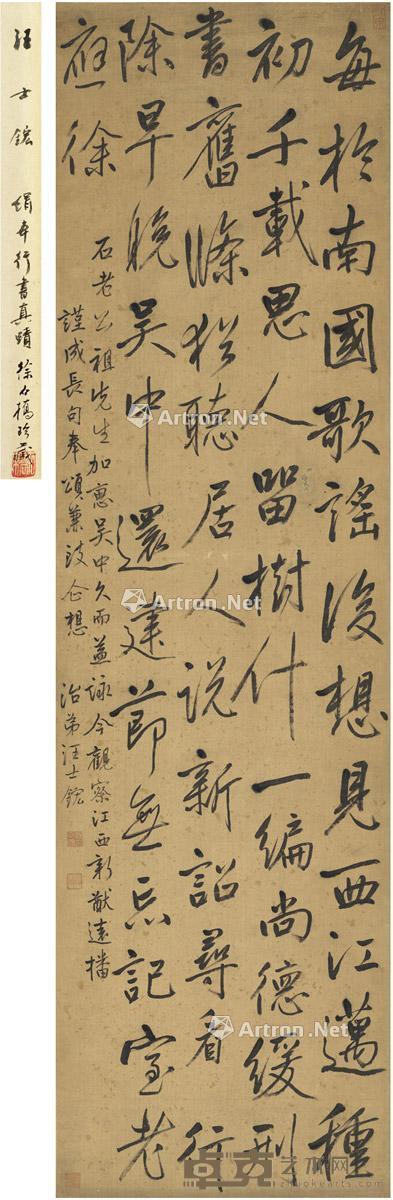 每於南國歌謠後想見西江邁種
初千載思人留樹什一編尚德緩刑
書舊條猶聽居人說新詔尋看行
除早晚吳中還建節無忘記室老
應徐
石老公祖先生加惠吳中久而益詠今觀察江西新猷遠播
謹成長句奉頌兼致企想
治弟汪士鋐
汪士鋐 絹本行書真蹟 徐 橋珍藏
Artron.Net
Artron.Net
Artron.Net
Artron.Net
Artron.Net
Artron.Net
卓克艺术网